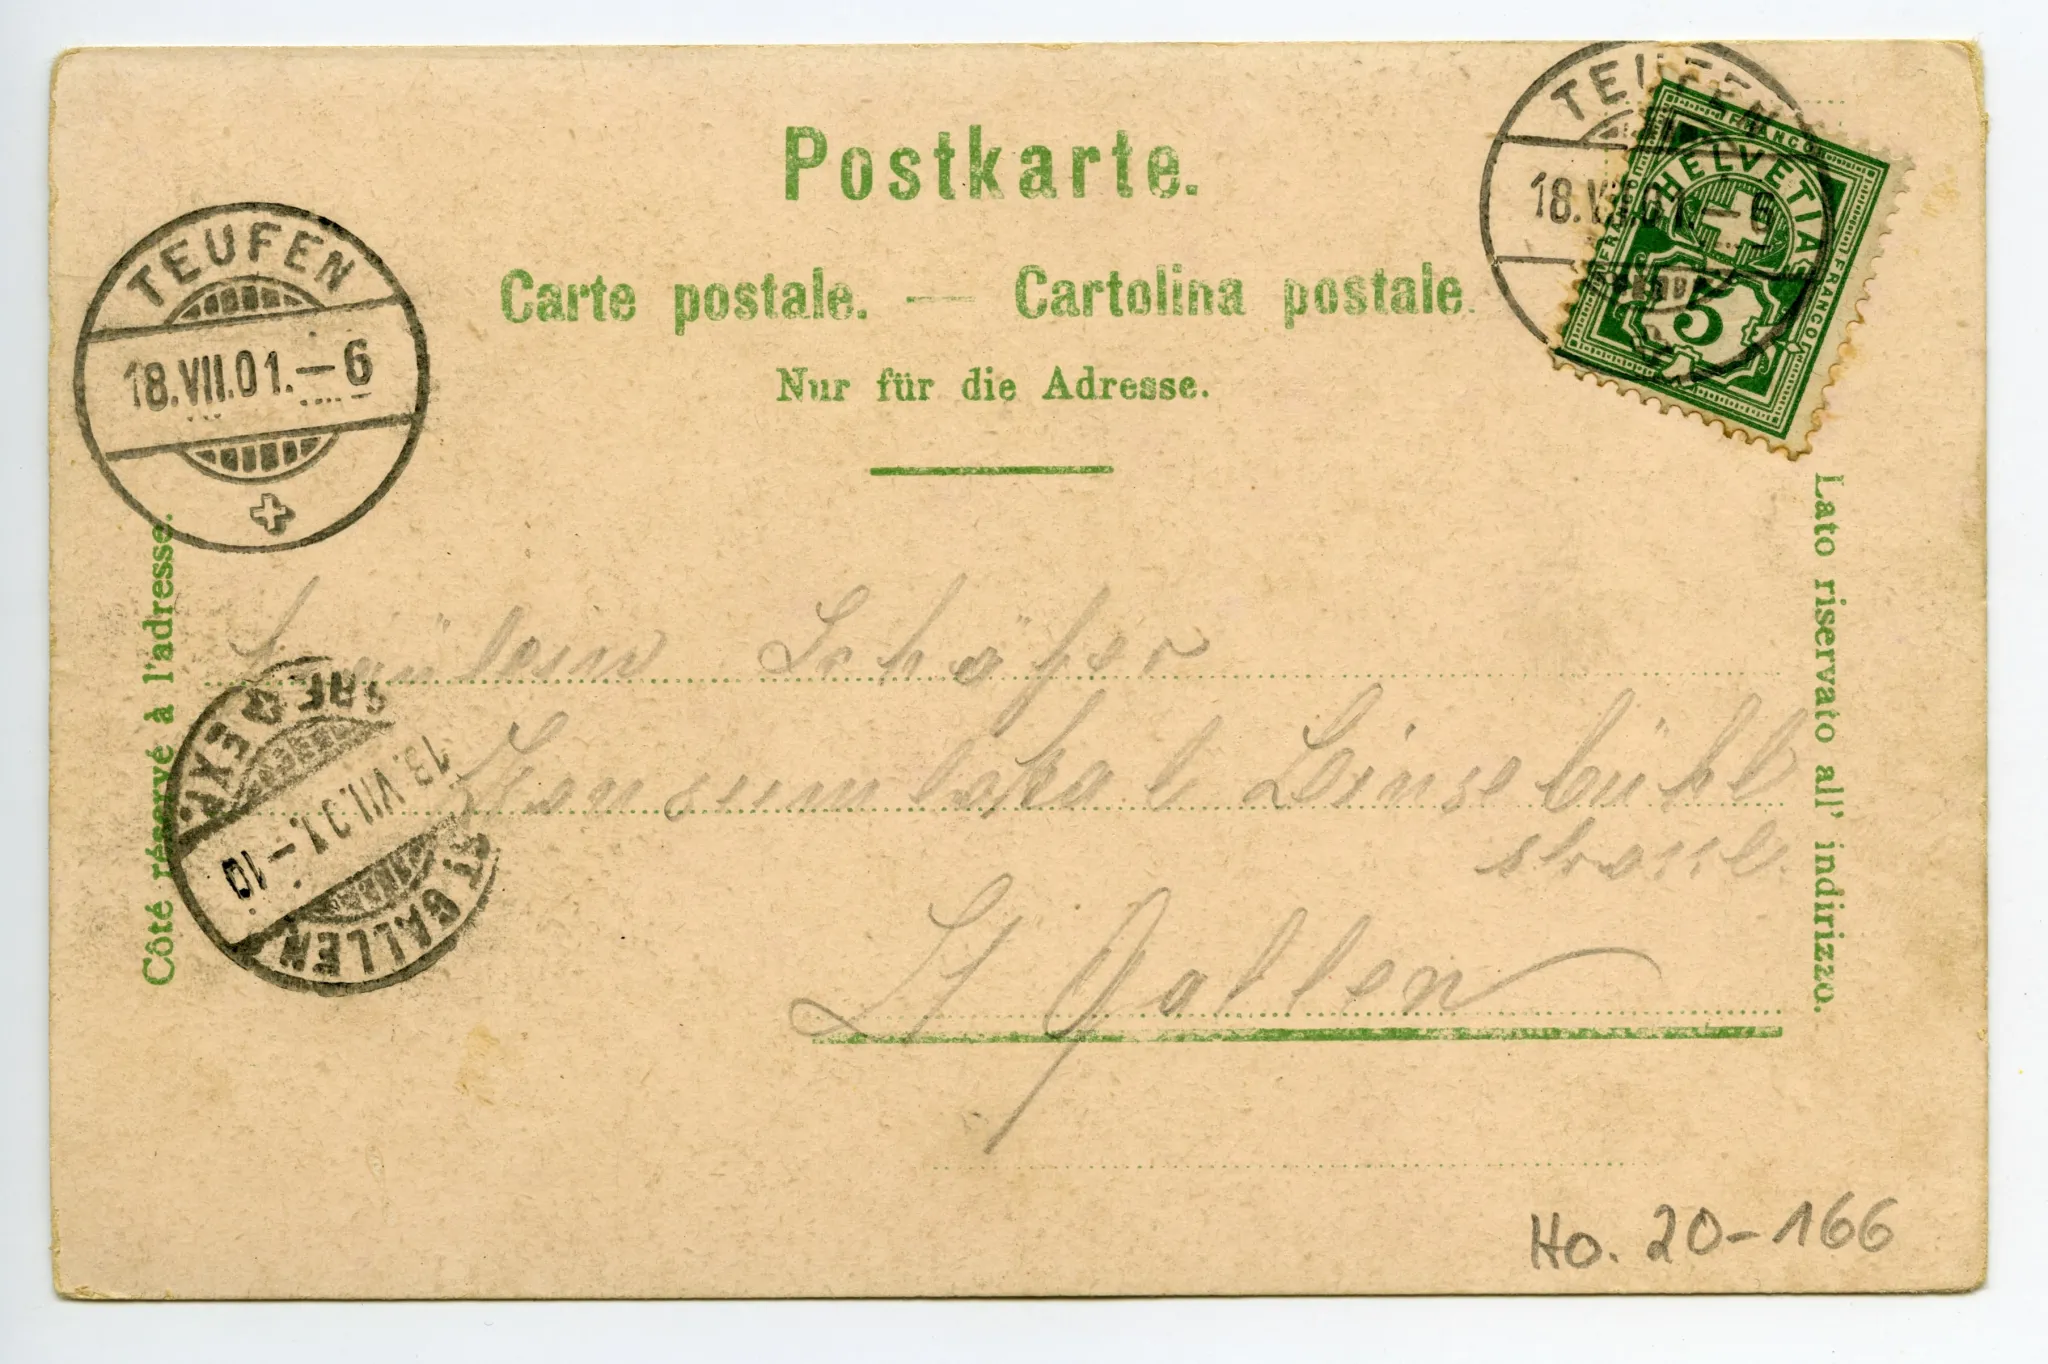 Postkarte.
Carte postale. — Cartolina postale.
Nur für die Adresse.
TEUFEN
18.VII.01.–6
TEUFEN
18.VII.01.–6
FRANCO
FRANCO
FRANCO
HELVETIA
5
Côté réservé à l'adresse.
Lato riservato all' indirizzo.
Fräulein Schäfer
Konsumlokal Linsebühl
strasse
St Gallen
ST. GALLEN
18.VII.01.–10
BRF. EXP.
Ho. 20-166